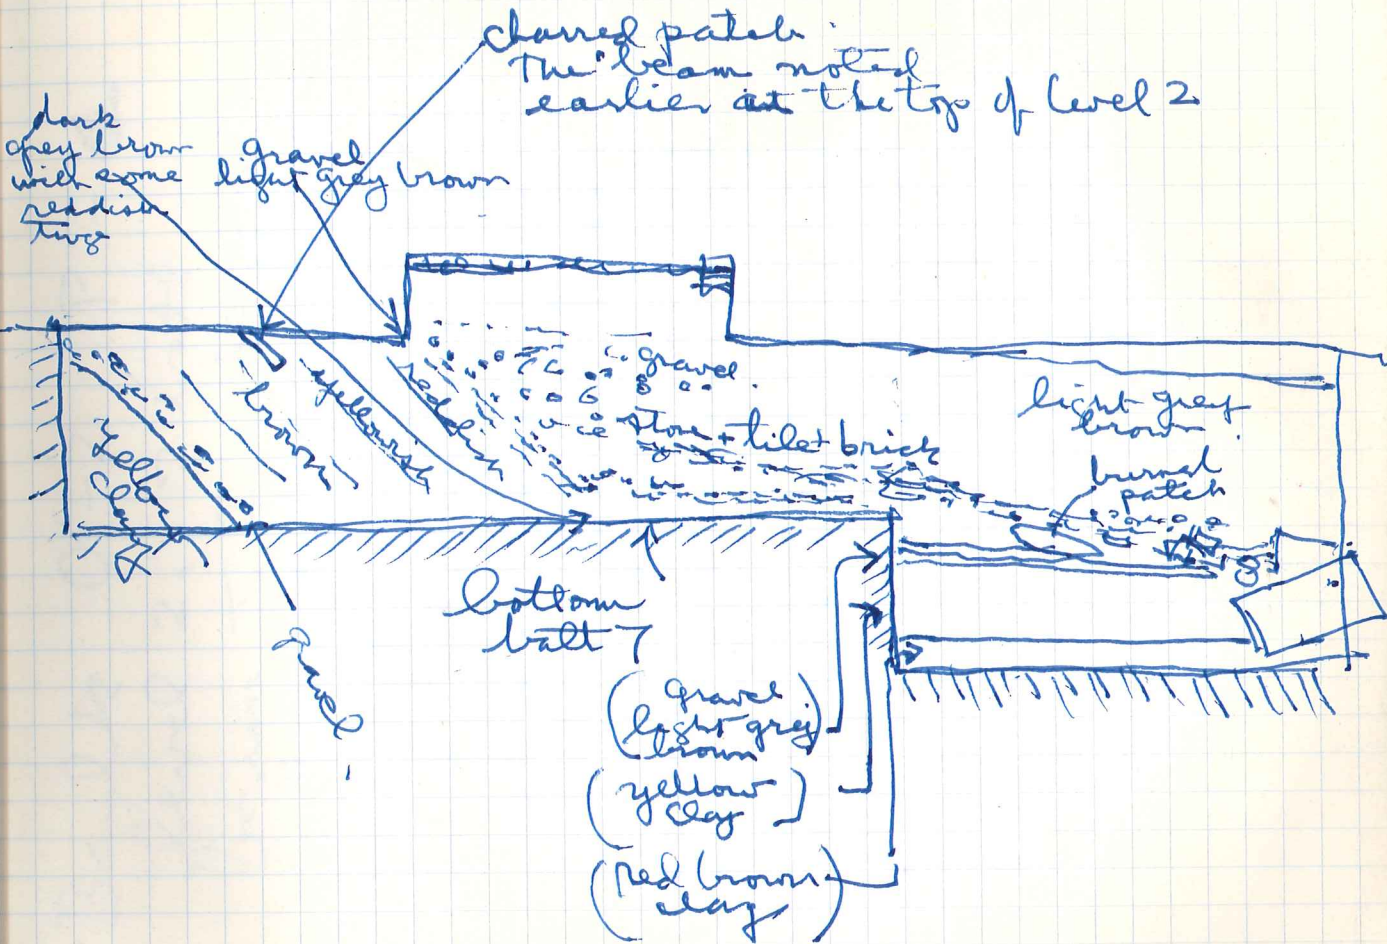 charred patch
The "beam noted
earlier at the top of level 2
dark
grey brown
with some
reddish
gravel
light grey brown
yellow
clay
brown
yellowish
reddish
gravel
stone + tile + brick
light grey
brown
burnt
patch
gravel
bottom
batt 7
(gravel
light grey
brown)
(yellow
clay)
(red brown
clay)